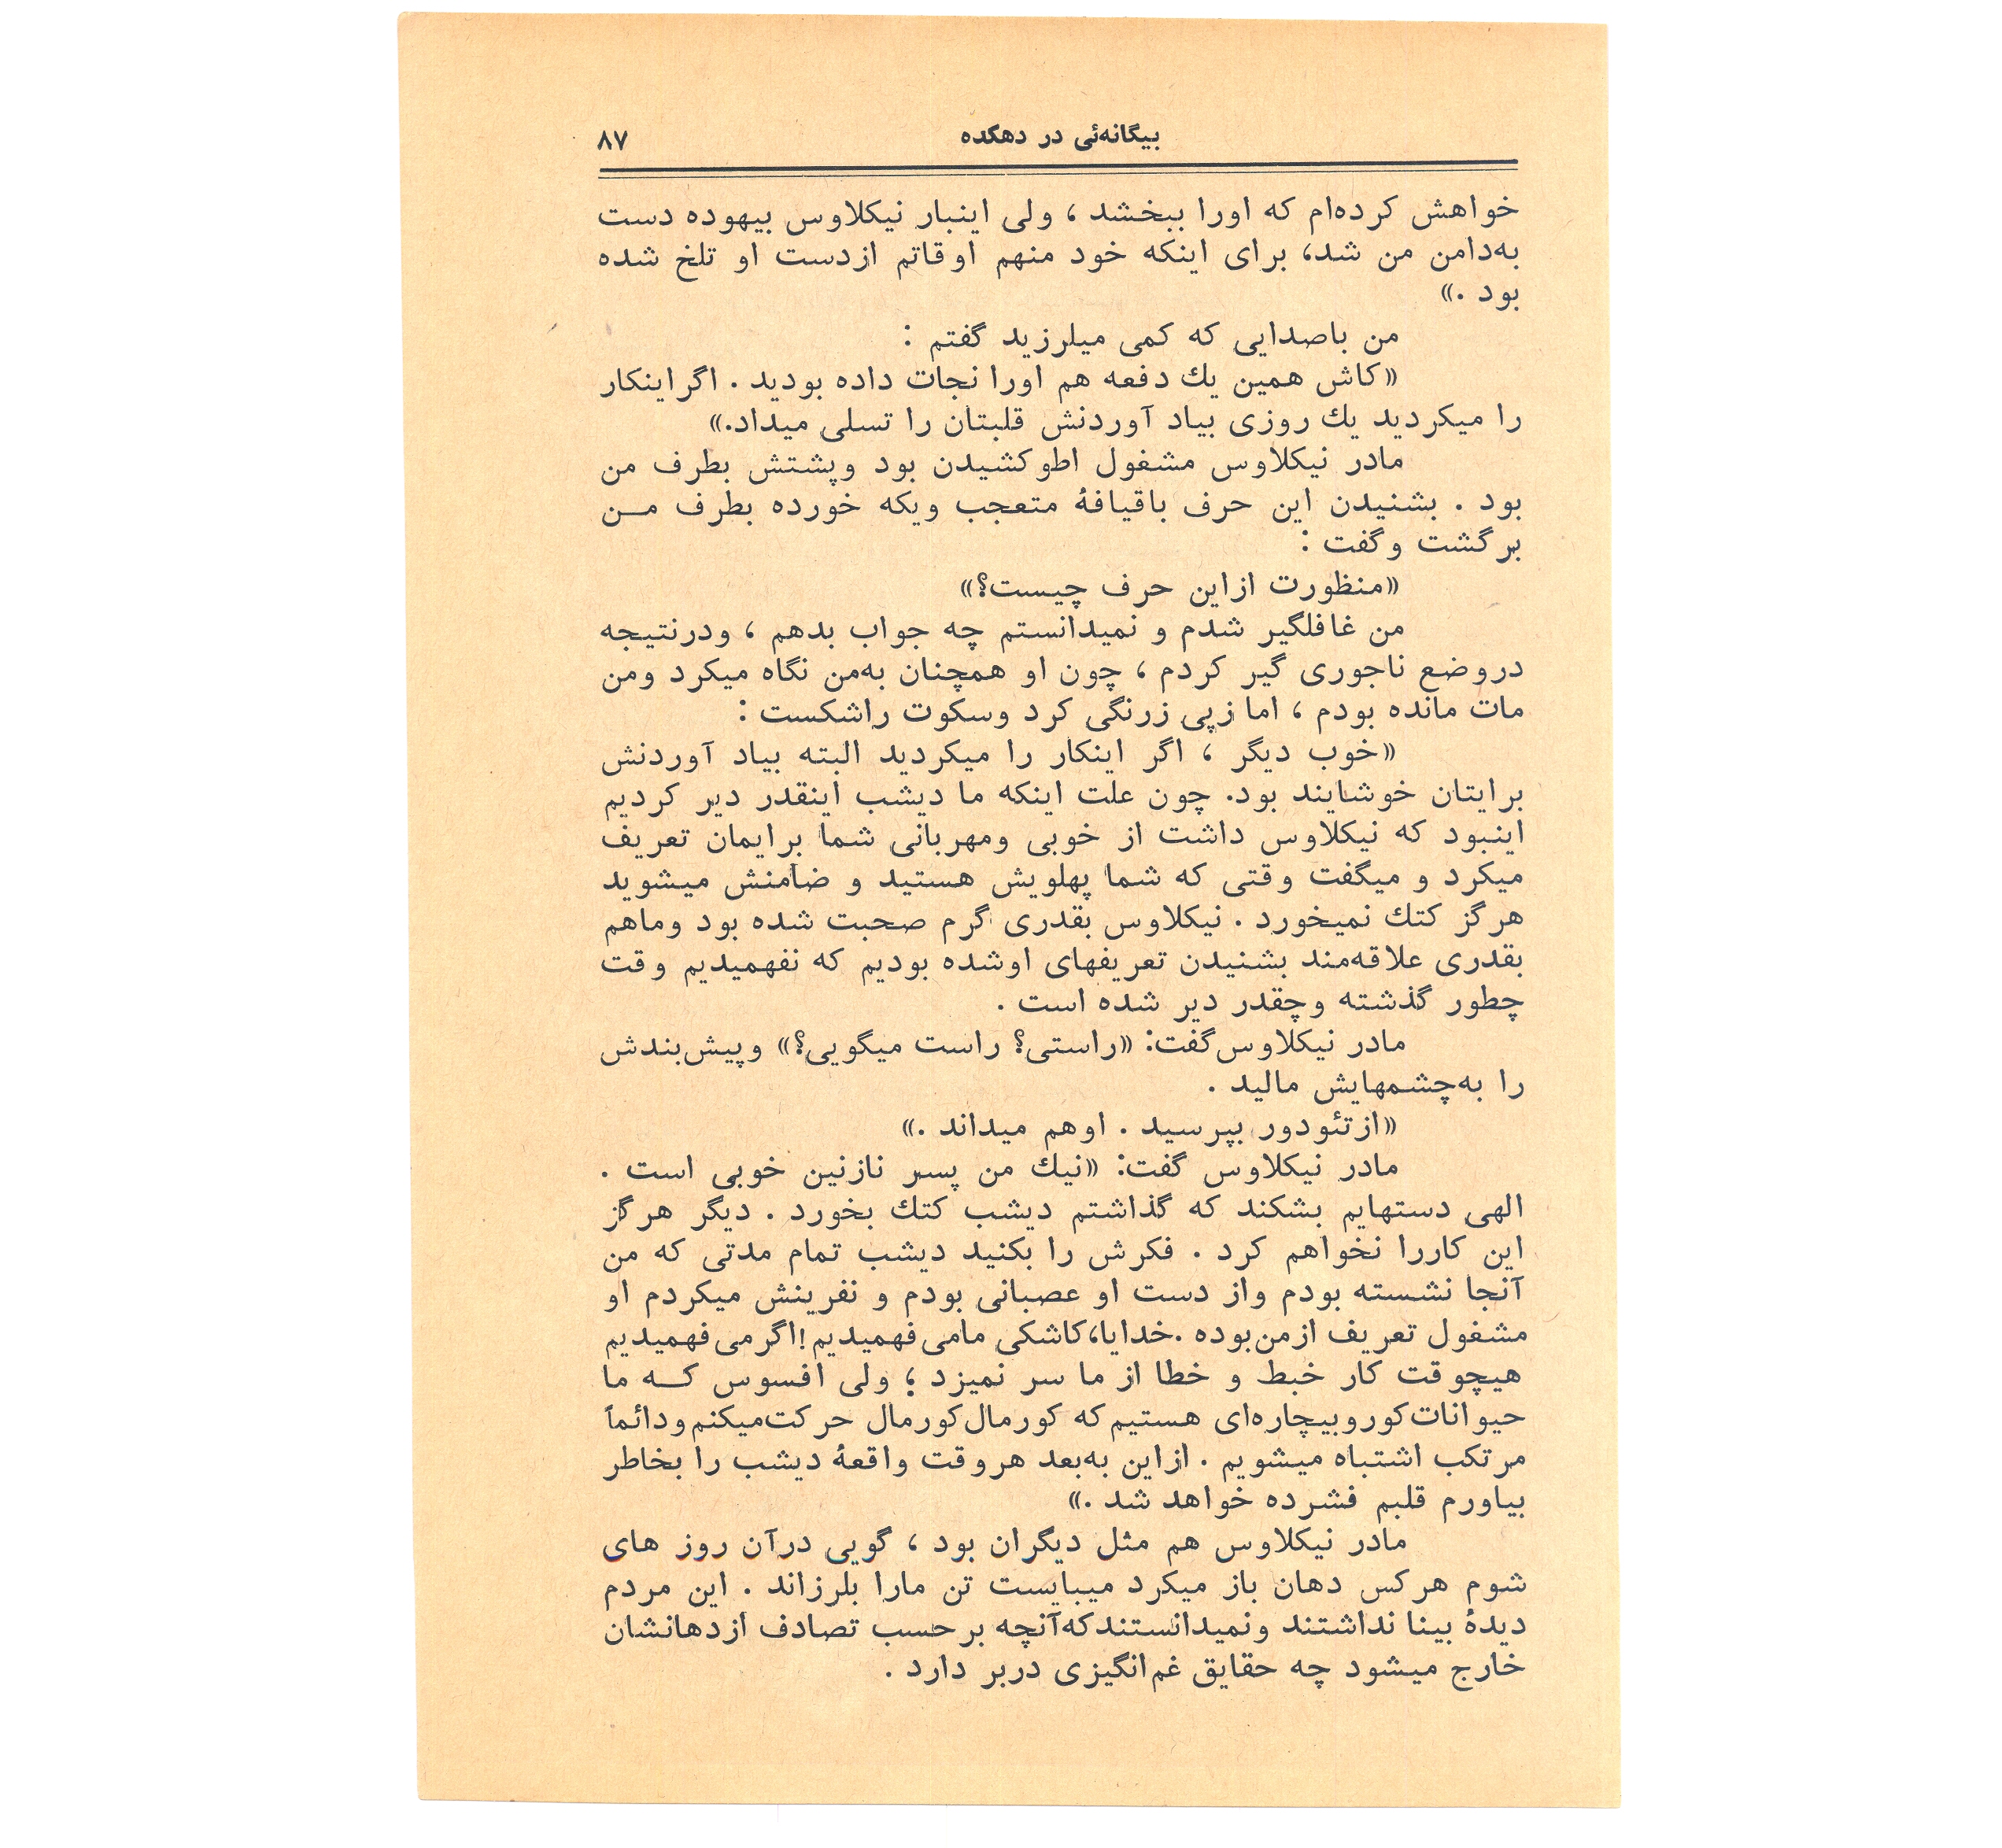 بیگانه‌ئی در دهکده
۸۷
خواهش کرده‌ام که اورا ببخشد ، ولی اینبار نیکلاوس بیهوده دست
به‌دامن من شد، برای اینکه خود منهم اوقاتم ازدست او تلخ شده
بود .»
من باصدایی که کمی میلرزید گفتم :
«کاش همین یك دفعه هم اورا نجات داده بودید . اگراینکار
را میکردید یك روزی بیاد آوردنش قلبتان را تسلی میداد.»
مادر نیکلاوس مشغول اطوکشیدن بود وپشتش بطرف من
بود . بشنیدن این حرف باقیافهٔ متعجب ویکه خورده بطرف مــن
برگشت وگفت :
«منظورت ازاین حرف چیست؟»
من غافلگیر شدم و نمیدانستم چه جواب بدهم ، ودرنتیجه
دروضع ناجوری گیر کردم ، چون او همچنان به‌من نگاه میکرد ومن
مات مانده بودم ، اما زپی زرنگی کرد وسکوت راشکست :
«خوب دیگر ، اگر اینکار را میکردید البته بیاد آوردنش
برایتان خوشایند بود. چون علت اینکه ما دیشب اینقدر دیر کردیم
اینبود که نیکلاوس داشت از خوبی ومهربانی شما برایمان تعریف
میکرد و میگفت وقتی که شما پهلویش هستید و ضامنش میشوید
هرگز کتك نمیخورد . نیکلاوس بقدری گرم صحبت شده بود وماهم
بقدری علاقه‌مند بشنیدن تعریفهای اوشده بودیم که نفهمیدیم وقت
چطور گذشته وچقدر دیر شده است .
مادر نیکلاوس‌گفت: «راستی؟ راست میگویی؟» وپیش‌بندش
را به‌چشمهایش مالید .
«ازتئودور بپرسید . اوهم میداند .»
مادر نیکلاوس گفت: «نیك من پسر نازنین خوبی است .
الهی دستهایم بشکند که گذاشتم دیشب کتك بخورد . دیگر هرگز
این کاررا نخواهم کرد . فکرش را بکنید دیشب تمام مدتی که من
آنجا نشسته بودم واز دست او عصبانی بودم و نفرینش میکردم او
مشغول تعریف ازمن‌بوده .خدایا،کاشکی مامی‌فهمیدیم!اگرمی‌فهمیدیم
هیچوقت کار خبط و خطا از ما سر نمیزد ؛ ولی افسوس کــه ما
حیوانات‌کوروبیچاره‌ای هستیم‌که کورمال‌کورمال حرکت‌میکنم‌ودائماً
مرتکب اشتباه میشویم . ازاین به‌بعد هروقت واقعهٔ دیشب را بخاطر
بیاورم قلبم فشرده خواهد شد .»
مادر نیکلاوس هم مثل دیگران بود ، گویی درآن روز های
شوم هرکس دهان باز میکرد میبایست تن مارا بلرزاند . این مردم
دیدهٔ بینا نداشتند ونمیدانستندکه‌آنچه برحسب تصادف ازدهانشان
خارج میشود چه حقایق غم‌انگیزی دربر دارد .